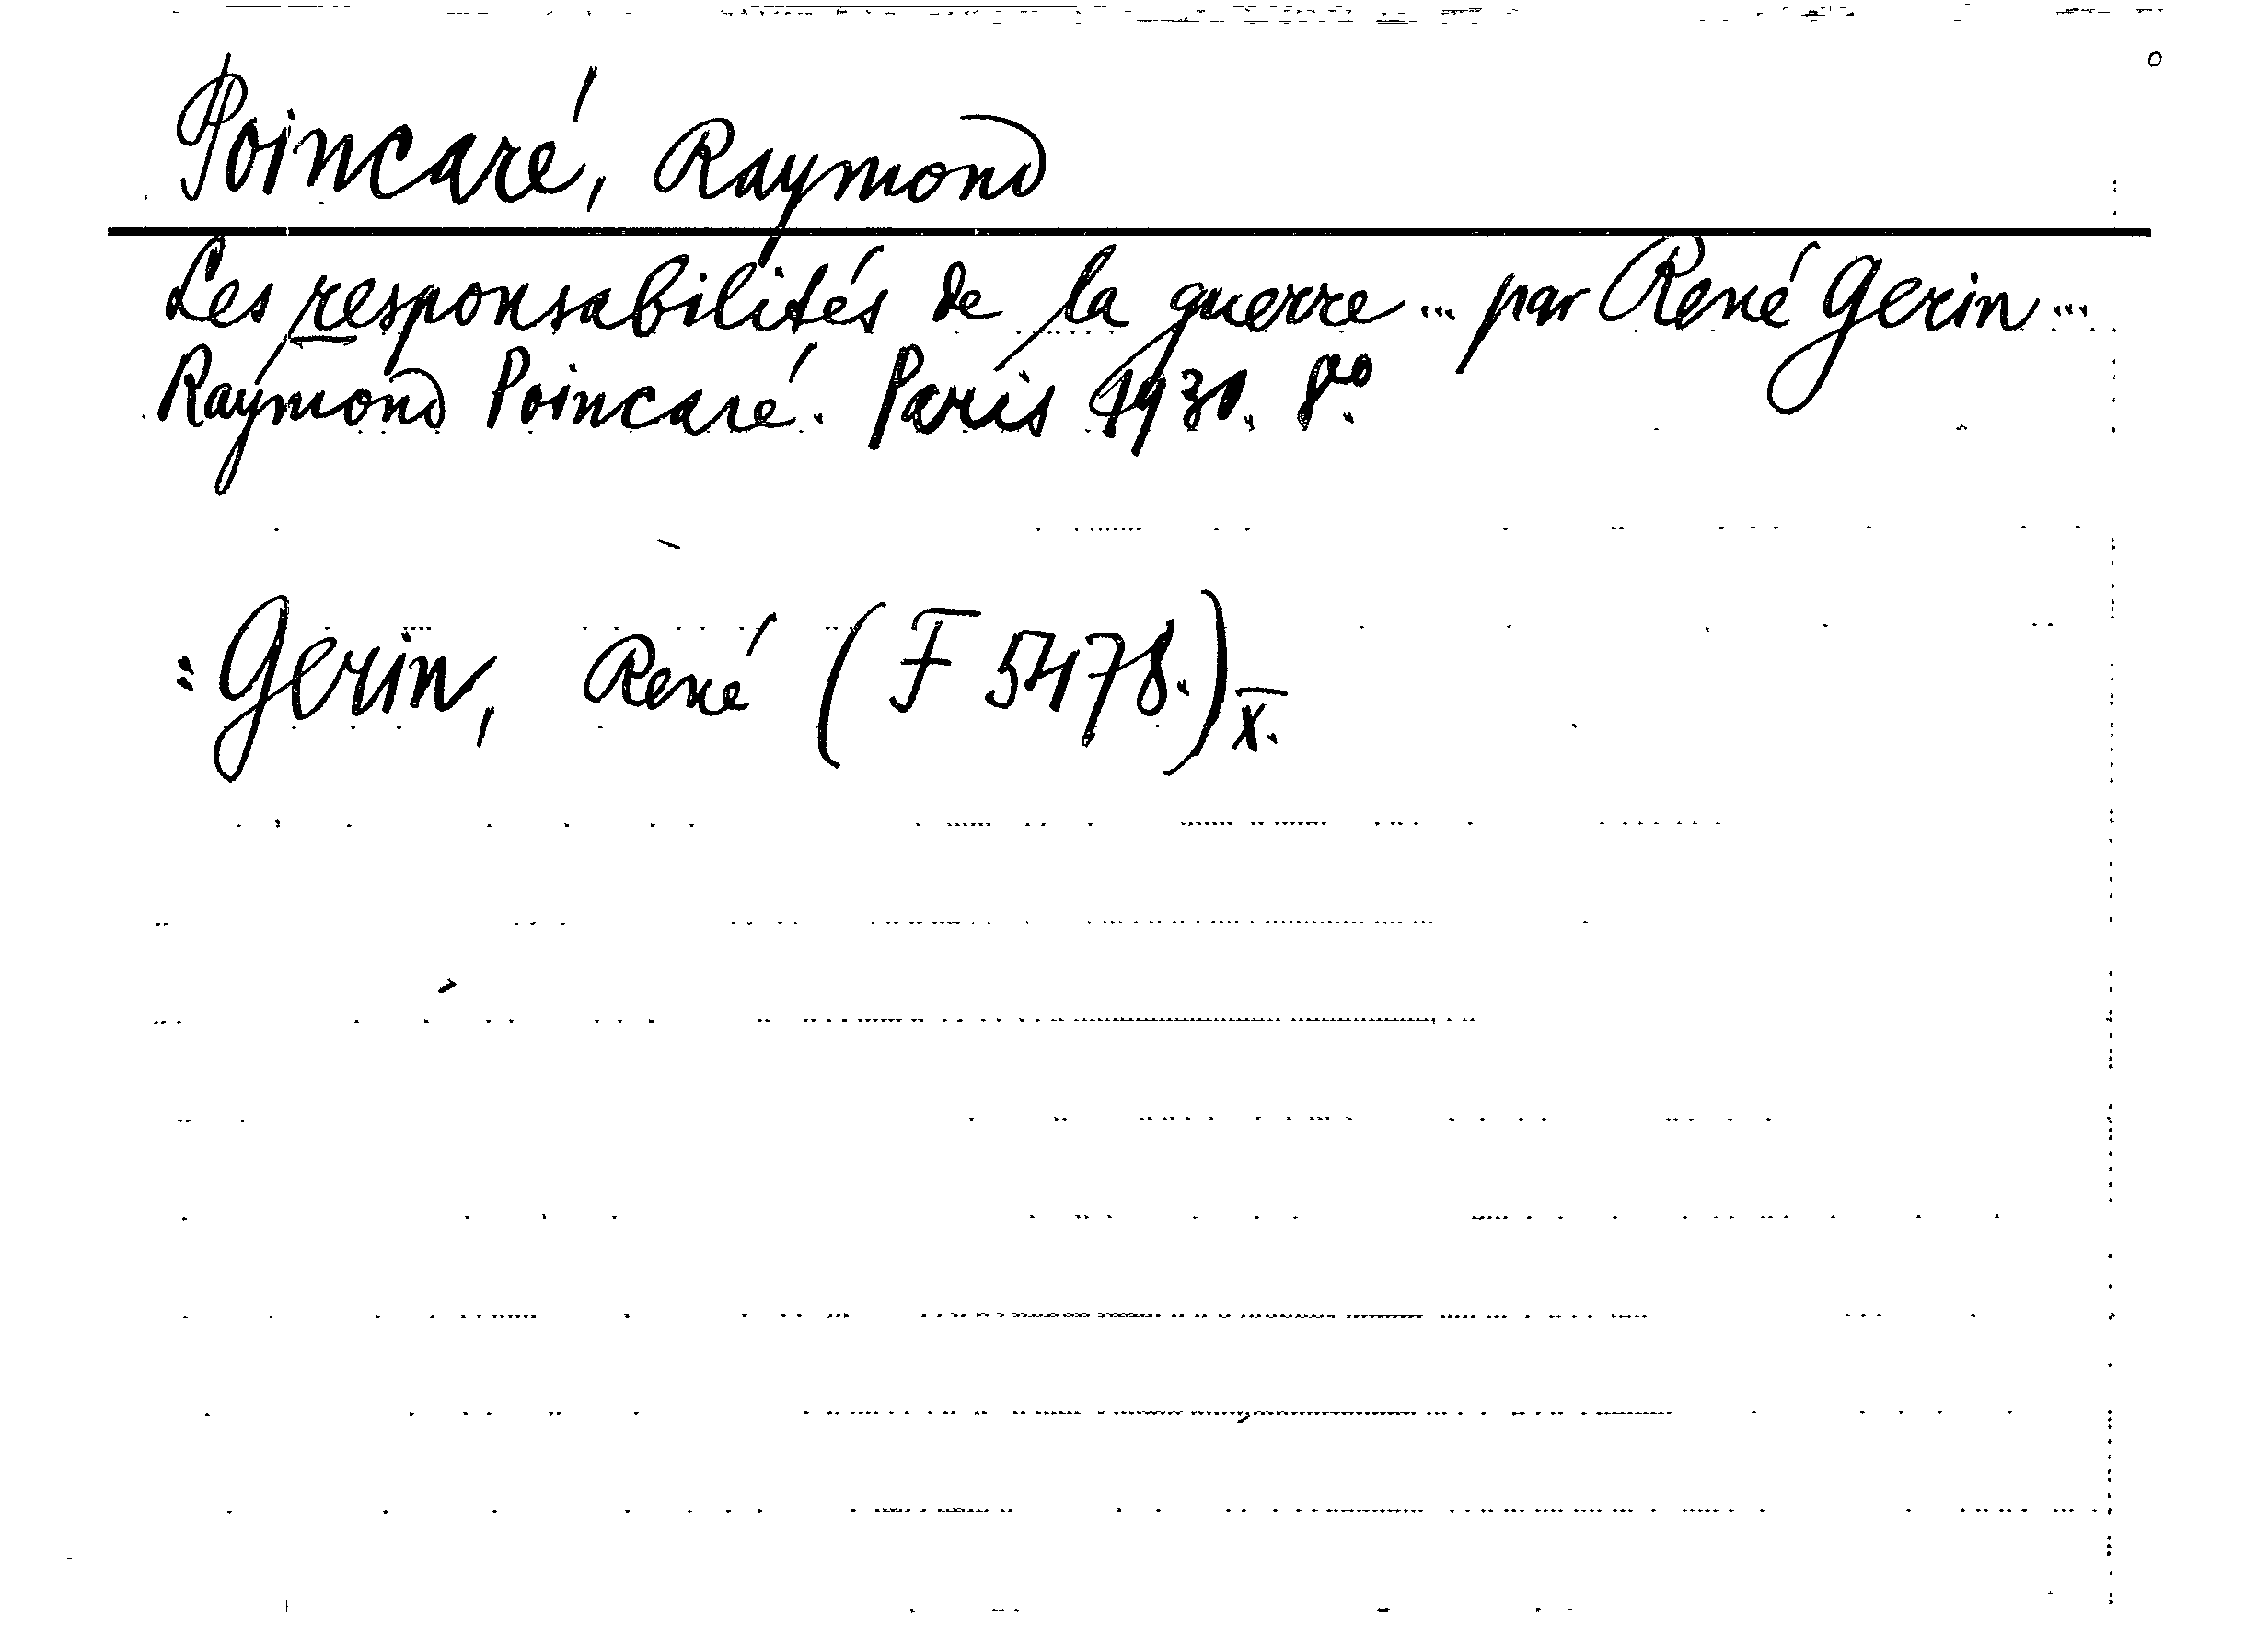 Poincaré, Raymond
Les responsabilités de la guerre... par René Gerin...
Raymond Poincaré. Paris 1930. 8vo.
=Gerin, René (F 5478.) X.